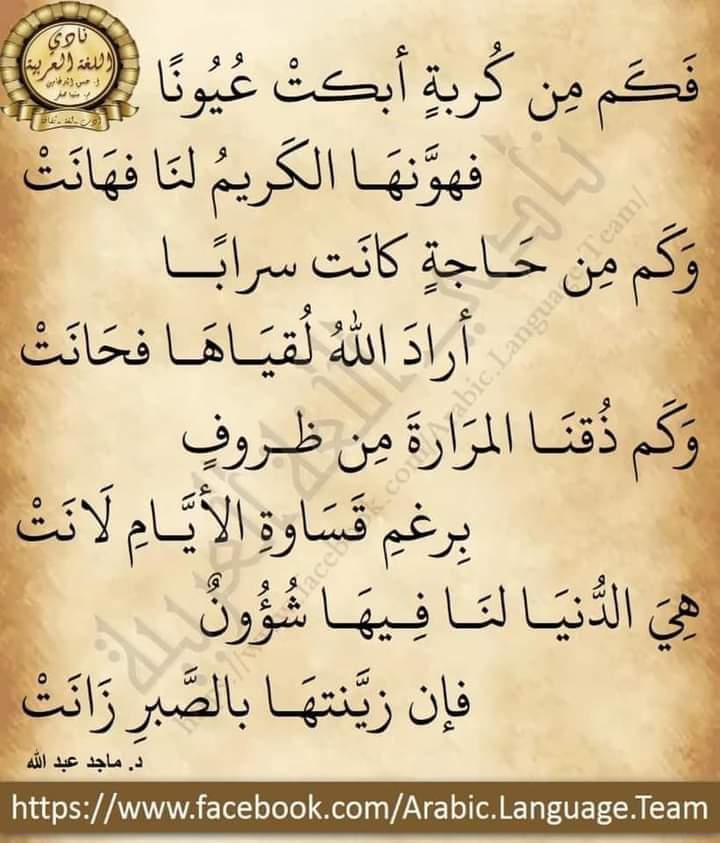 نادي
اللغة العربية
فَكَم مِن كُربةٍ أبكتْ عُيُونًا
فهوَّنهَــا الكَريمُ لنَا فهَانَتْ
وَكَم مِن حَــاجةٍ كانَت سرابًــا
أرادَ اللهُ لُقيَــاهَــا فحَانَتْ
وَكَم ذُقنَــا المرَارةَ مِن ظــروفٍ
بِرغمِ قَسَاوةِ الأيَّــامِ لَانَتْ
هِيَ الدُّنيَــا لنَــا فِيهَــا شُؤُونٌ
فإن زيَّنتهَــا بالصَّبرِ زَانَتْ
د. ماجد عبد الله
https://www.facebook.com/Arabic.Language.Team